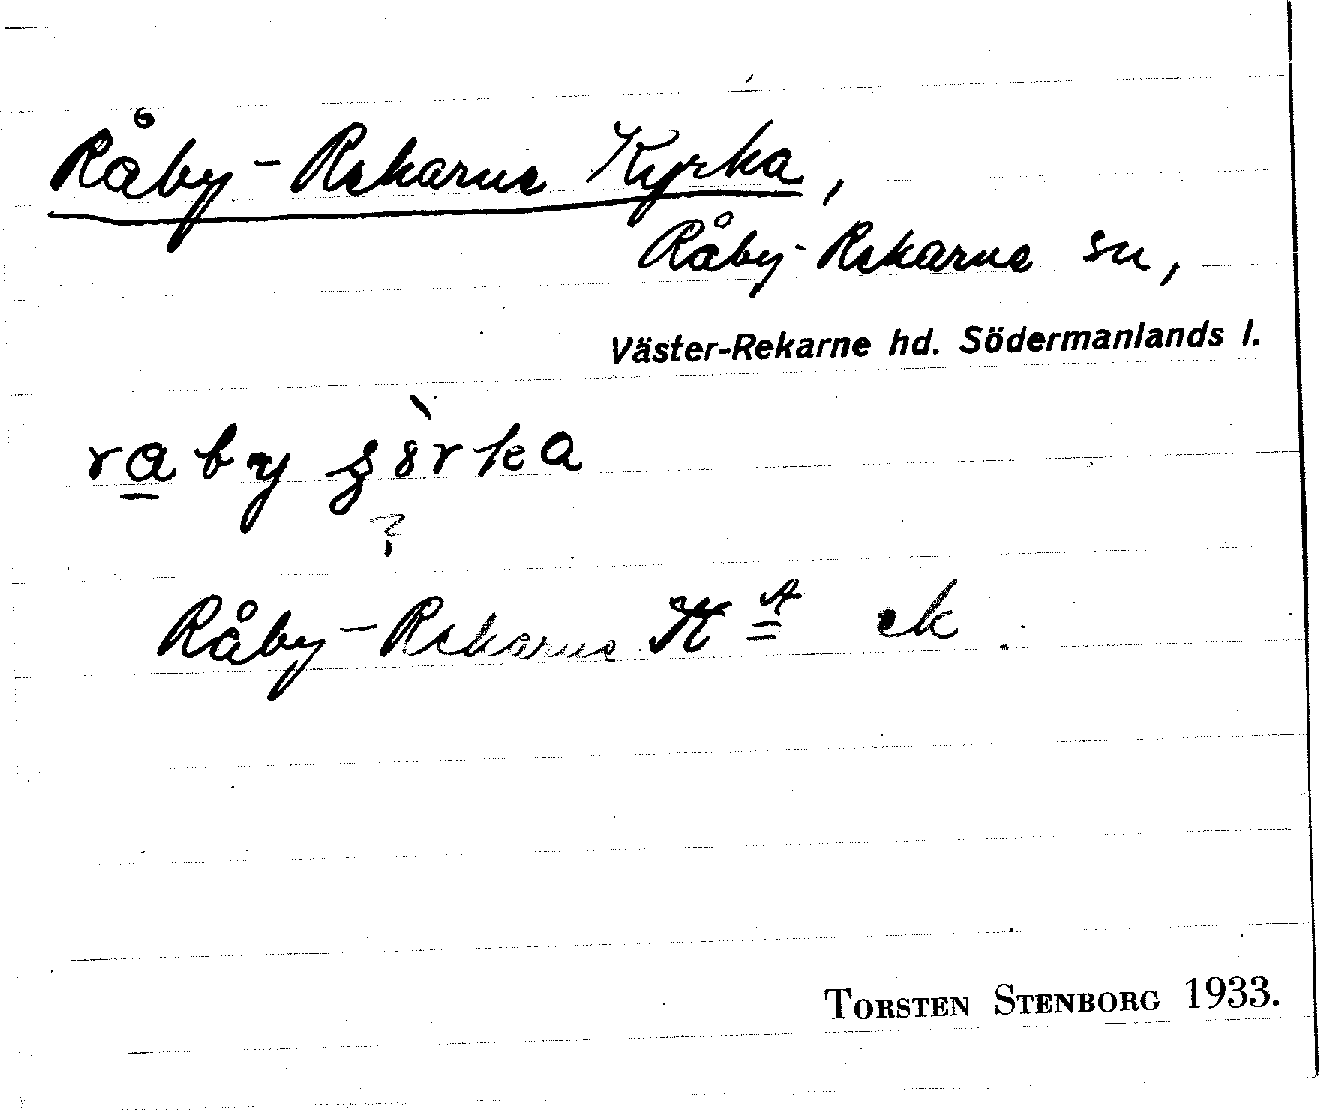 Råby-Rekarne Kyrka,
Råby-Rekarne sn,
Väster-Rekarne hd. Södermanlands l.
raby
?
Råby-Rekarne K:A ek
TORSTEN STENBORG 1933.